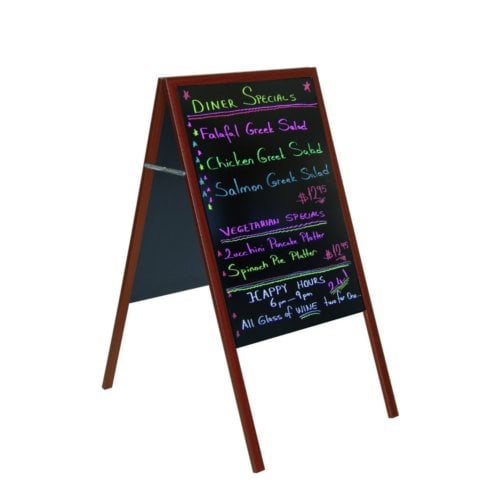 DINER SPECIALS
Falafal Greek Salad
Chicken Greek Salad
Salmon Greek Salad
$12.95
VEGETARIAN SPECIALS
Zucchini Pancake Platter
Spinach Pie Platter $10.95
HAPPY HOURS 2 4 1
6pm-9pm
All Glass of WINE two for One...